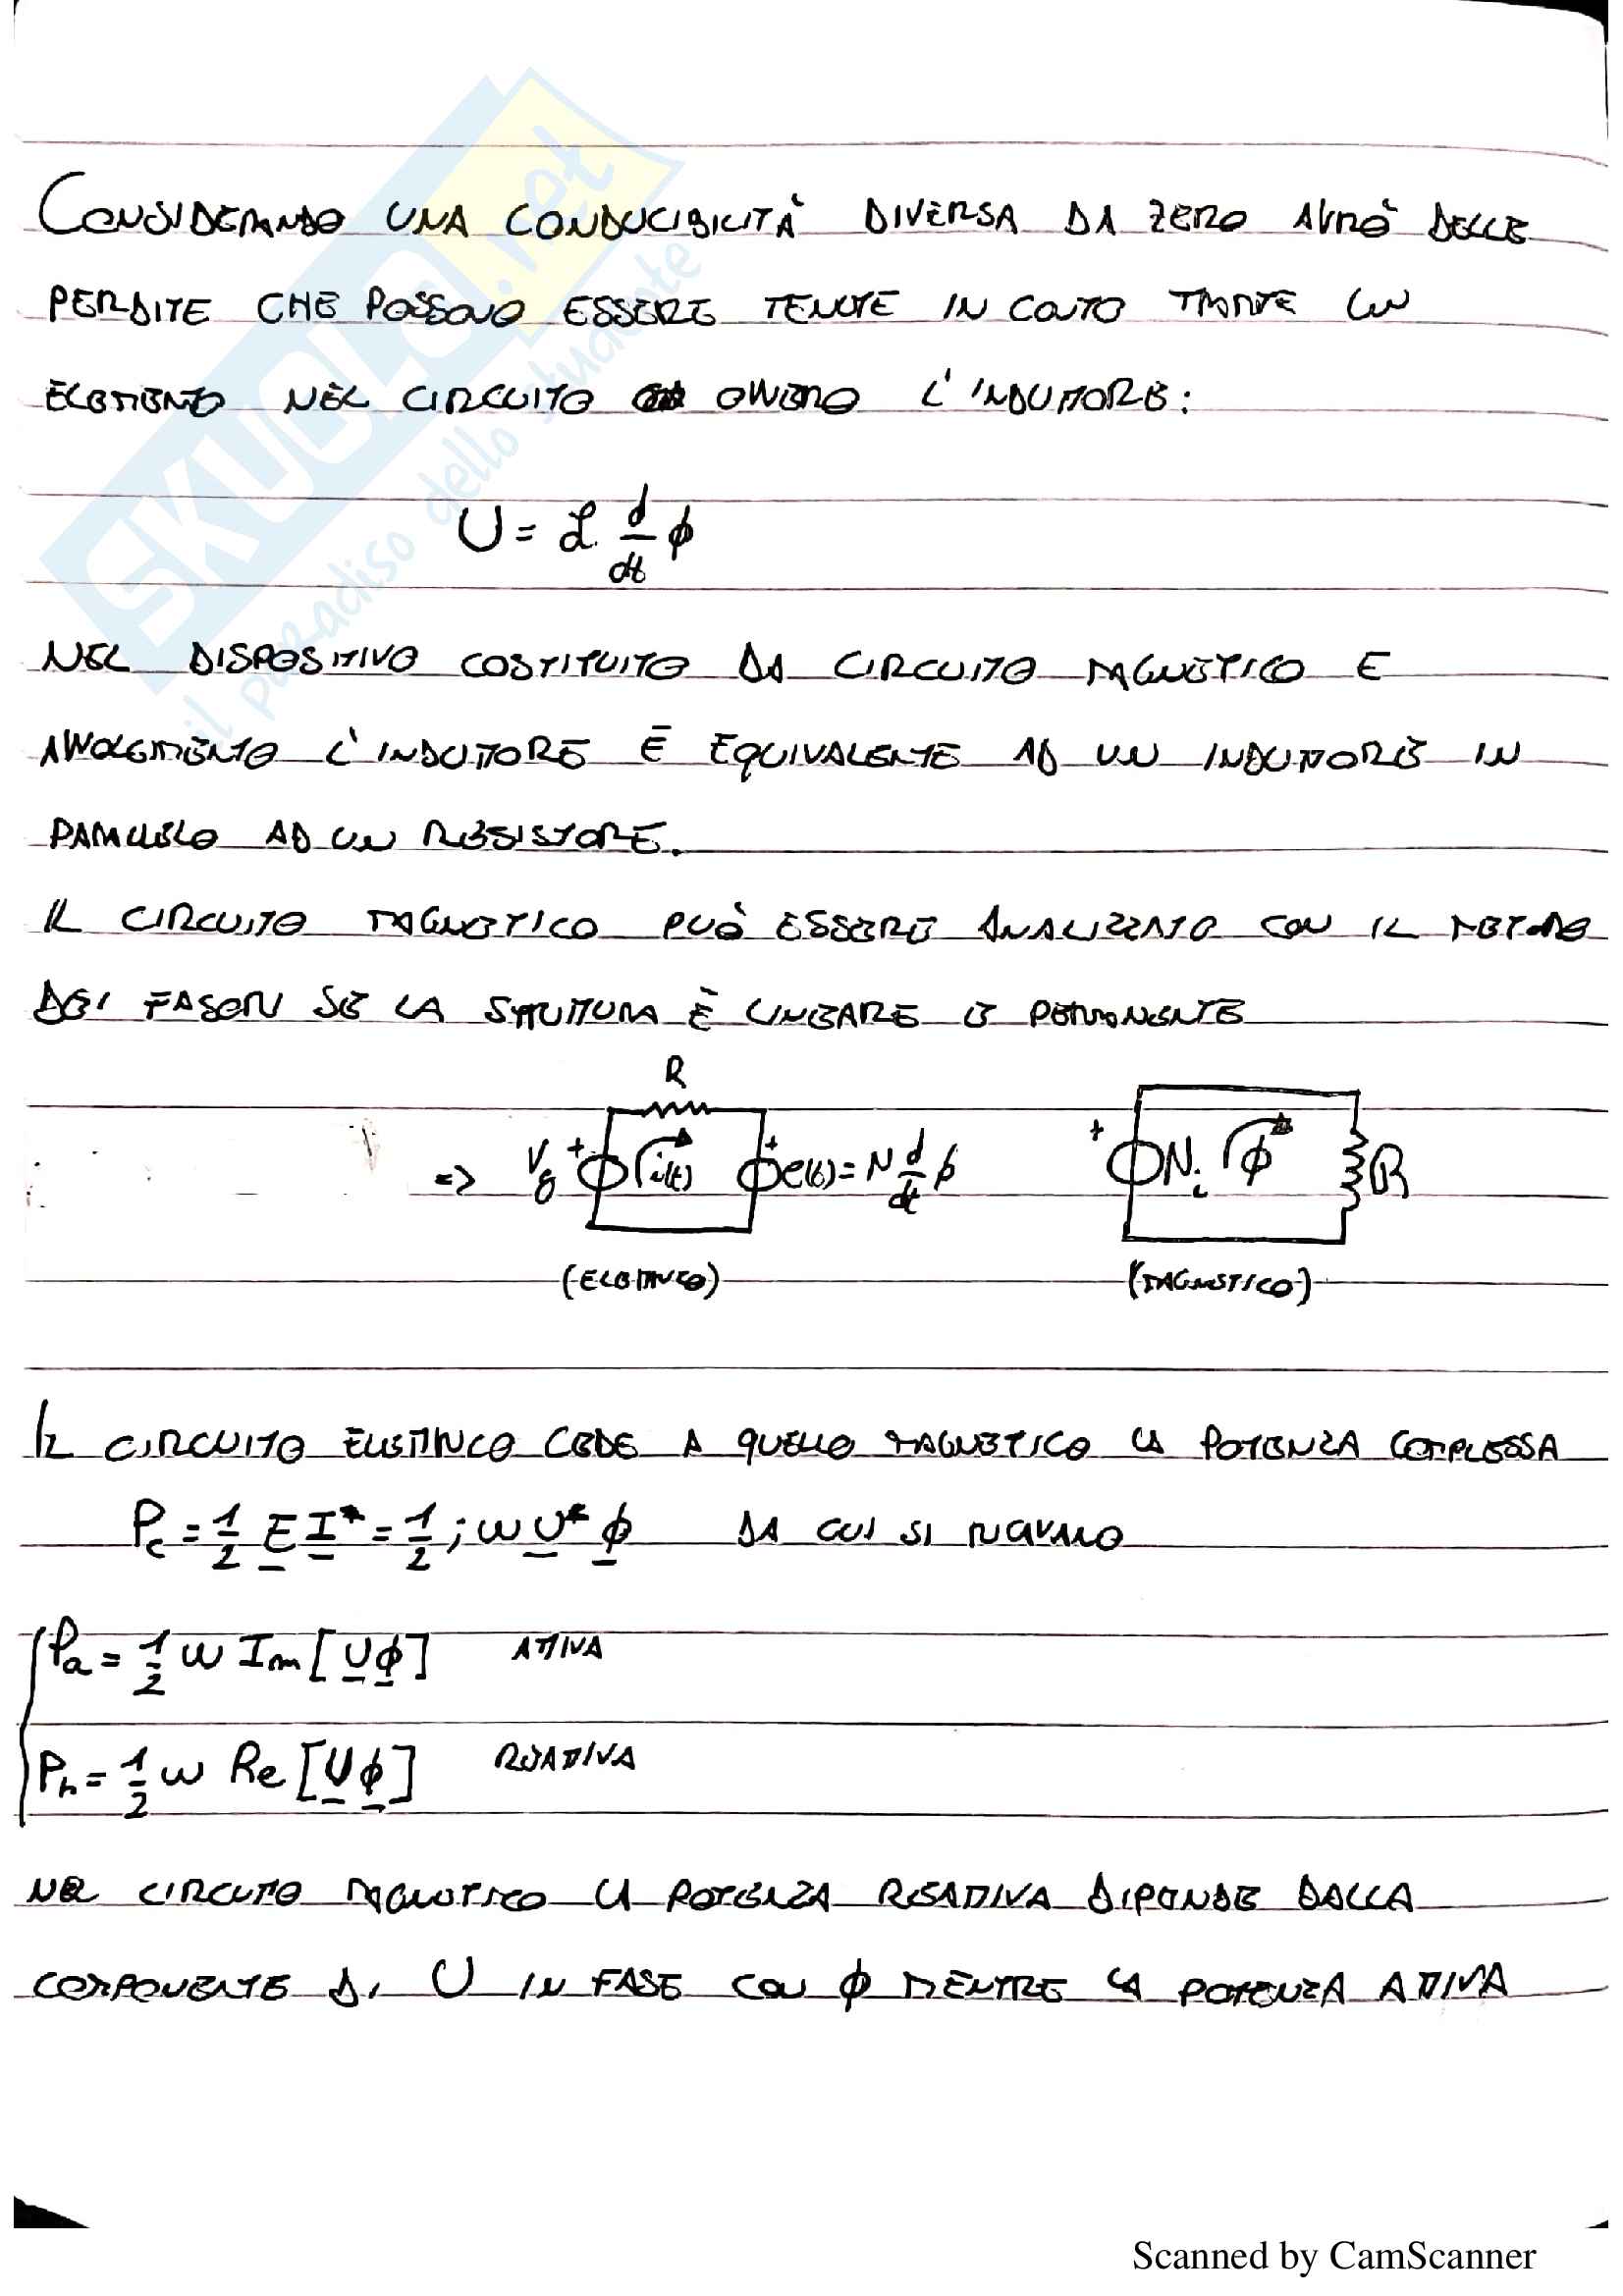 CONSIDERANDO UNA CONDUCIBILITÀ DIVERSA DA ZERO AVRÒ DELLE
PERDITE CHE POSSONO ESSERE TENUTE IN CONTO TRAMITE UN
ELEMENTO NEL CIRCUITO OVVERO L'INDUTTORE:
U = ℒ d/dt ϕ
NEL DISPOSITIVO COSTITUITO DA CIRCUITO MAGNETICO E
AVVOLGIMENTO L'INDUTTORE È EQUIVALENTE AD UN INDUTTORE IN
PARALLELO AD UN RESISTORE.
IL CIRCUITO MAGNETICO PUÒ ESSERE ANALIZZATO CON IL METODO
DEI FASORI SE LA STRUTTURA È LINEARE E PERMANENTE
R
=> Vg + i(t) + e(t) = N d/dt ϕ + Ni ϕ R
(ELETTRICO) (MAGNETICO)
IL CIRCUITO ELETTRICO CEDE A QUELLO MAGNETICO LA POTENZA COMPLESSA
Pc = 1/2 E I* = 1/2 jω U* ϕ DA CUI SI RICAVANO
Pa = 1/2 ω Im [Uϕ] ATTIVA
Pr = 1/2 ω Re [Uϕ] REATTIVA
NEL CIRCUITO MAGNETICO LA POTENZA REATTIVA DIPENDE DALLA
COMPONENTE DI U IN FASE CON ϕ MENTRE LA POTENZA ATTIVA
SKUOLA.net
il paradiso dello studente
Scanned by CamScanner